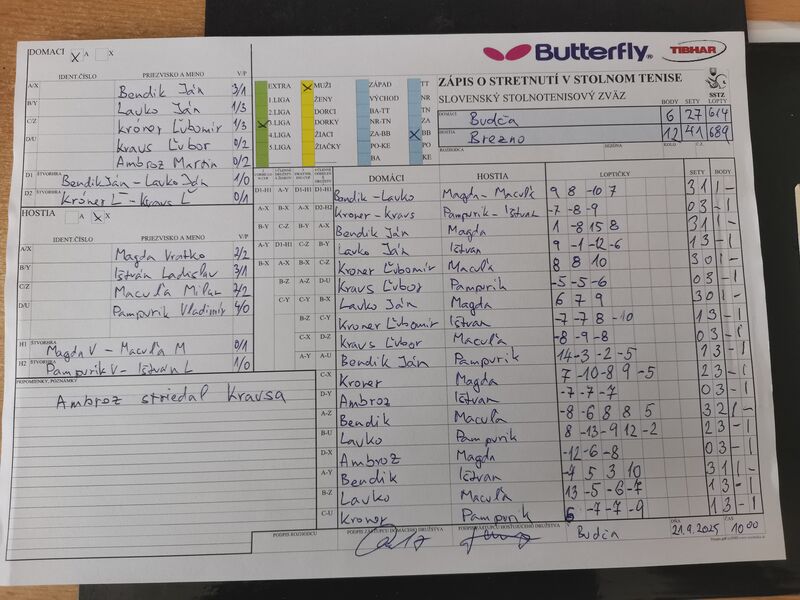 DOMACI X A X
Butterfly® TIBHAR
IDENT.ČÍSLO PRIEZVISKO A MENO V/P
A/X Bendik Ján 3/1
B/Y Lavko Ján 1/3
C/Z Kroner Ľubomír 1/3
D/U Kraus Ľubor 0/2
Ambroz Martin 0/2
D1 ŠTVORHRA Bendik Ján - Lavko Ján 1/0
D2 ŠTVORHRA Kröner Ľ - Kraus Ľ 0/1
HOSTIA A X X
IDENT.ČÍSLO PRIEZVISKO A MENO V/P
A/X Magda Vratko 2/2
B/Y Ištván Ladislav 3/1
C/Z Macuľa Milan 2/2
D/U Pampurik Vladimír 4/0
H1 ŠTVORHRA Magda V - Macuľa M 0/1
H2 ŠTVORHRA Pampurik V - Ištvan L 1/0
PRIPOMIENKY, POZNÁMKY
Ambroz striedal Krausa
EXTRA X MUŽI ZÁPAD TT
1.LIGA ŽENY VÝCHOD NR
2.LIGA DORCI BA-TT TN
X 3.LIGA DORKY NR-TN ZA
4.LIGA ŽIACI ZA-BB X BB
5.LIGA ŽIAČKY PO-KE PO
BA KE
ZÁPIS O STRETNUTÍ V STOLNOM TENISE
SLOVENSKÝ STOLNOTENISOVÝ ZVÄZ
SSTZ
BODY SETY LOPTY
DOMÁCI Budča 6 27 614
HOSTIA Brezno 12 41 689
ROZHODCA SEZÓNA KOLO Č.Z.
DOMÁCI HOSTIA LOPTIČKY SETY BODY
Bendik - Lavko Magda - Macuľa 9 8 -10 7 3 1 1 -
Kroner - Kraus Pampurik - Ištvan -7 -8 -9 0 3 - 1
Bendik Ján Magda 1 -8 15 8 3 1 1 -
Lavko Ján Ištvan 9 -1 -12 -6 1 3 - 1
Kroner Ľubomír Macuľa 8 8 10 3 0 1 -
Kraus Ľubor Pampurik -5 -5 -6 0 3 - 1
Lavko Ján Magda 6 7 9 3 0 1 -
Kroner Ľubomír Ištvan -7 -7 8 -10 1 3 - 1
Kraus Ľubor Macuľa -8 -9 -8 0 3 - 1
Bendik Ján Pampurik 14 -3 -2 -5 1 3 - 1
C-X Kroner Magda 7 -10 -8 9 -5 2 3 - 1
D-Y Ambroz Ištvan -7 -7 -7 0 3 - 1
A-Z Bendik Macuľa -8 -6 8 8 5 3 2 1 -
B-U Lavko Pampurik 8 -13 -9 12 -2 2 3 - 1
D-X Ambroz Magda -12 -6 -8 0 3 - 1
A-Y Bendik Ištvan -4 5 3 10 3 1 1 -
B-Z Lavko Macuľa 13 -5 -6 -7 1 3 - 1
C-U Kroner Pampurik 6 -7 -7 -9 1 3 - 1
PODPIS ROZHODCU PODPIS ZÁSTUPCU DOMÁCEHO DRUŽSTVA PODPIS ZÁSTUPCU HOSŤUJÚCEHO DRUŽSTVA Budča DŇA 21.9.2025 ČAS 10 00